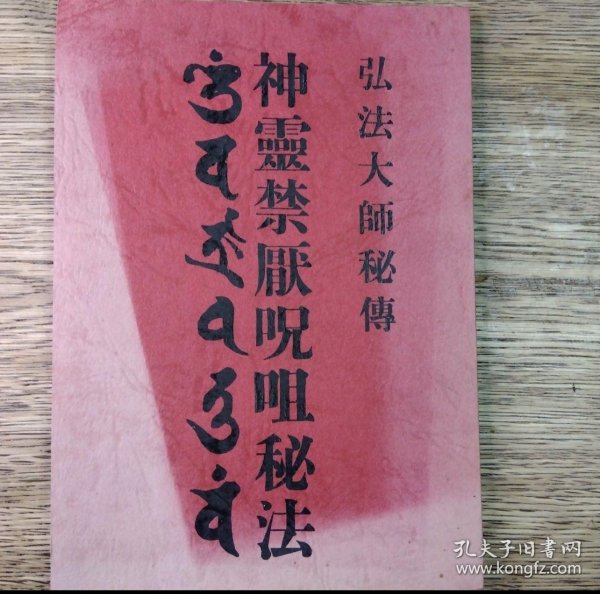 弘法大師秘傳
神靈禁厭呪咀秘法
孔夫子旧书网
www.kongfz.com